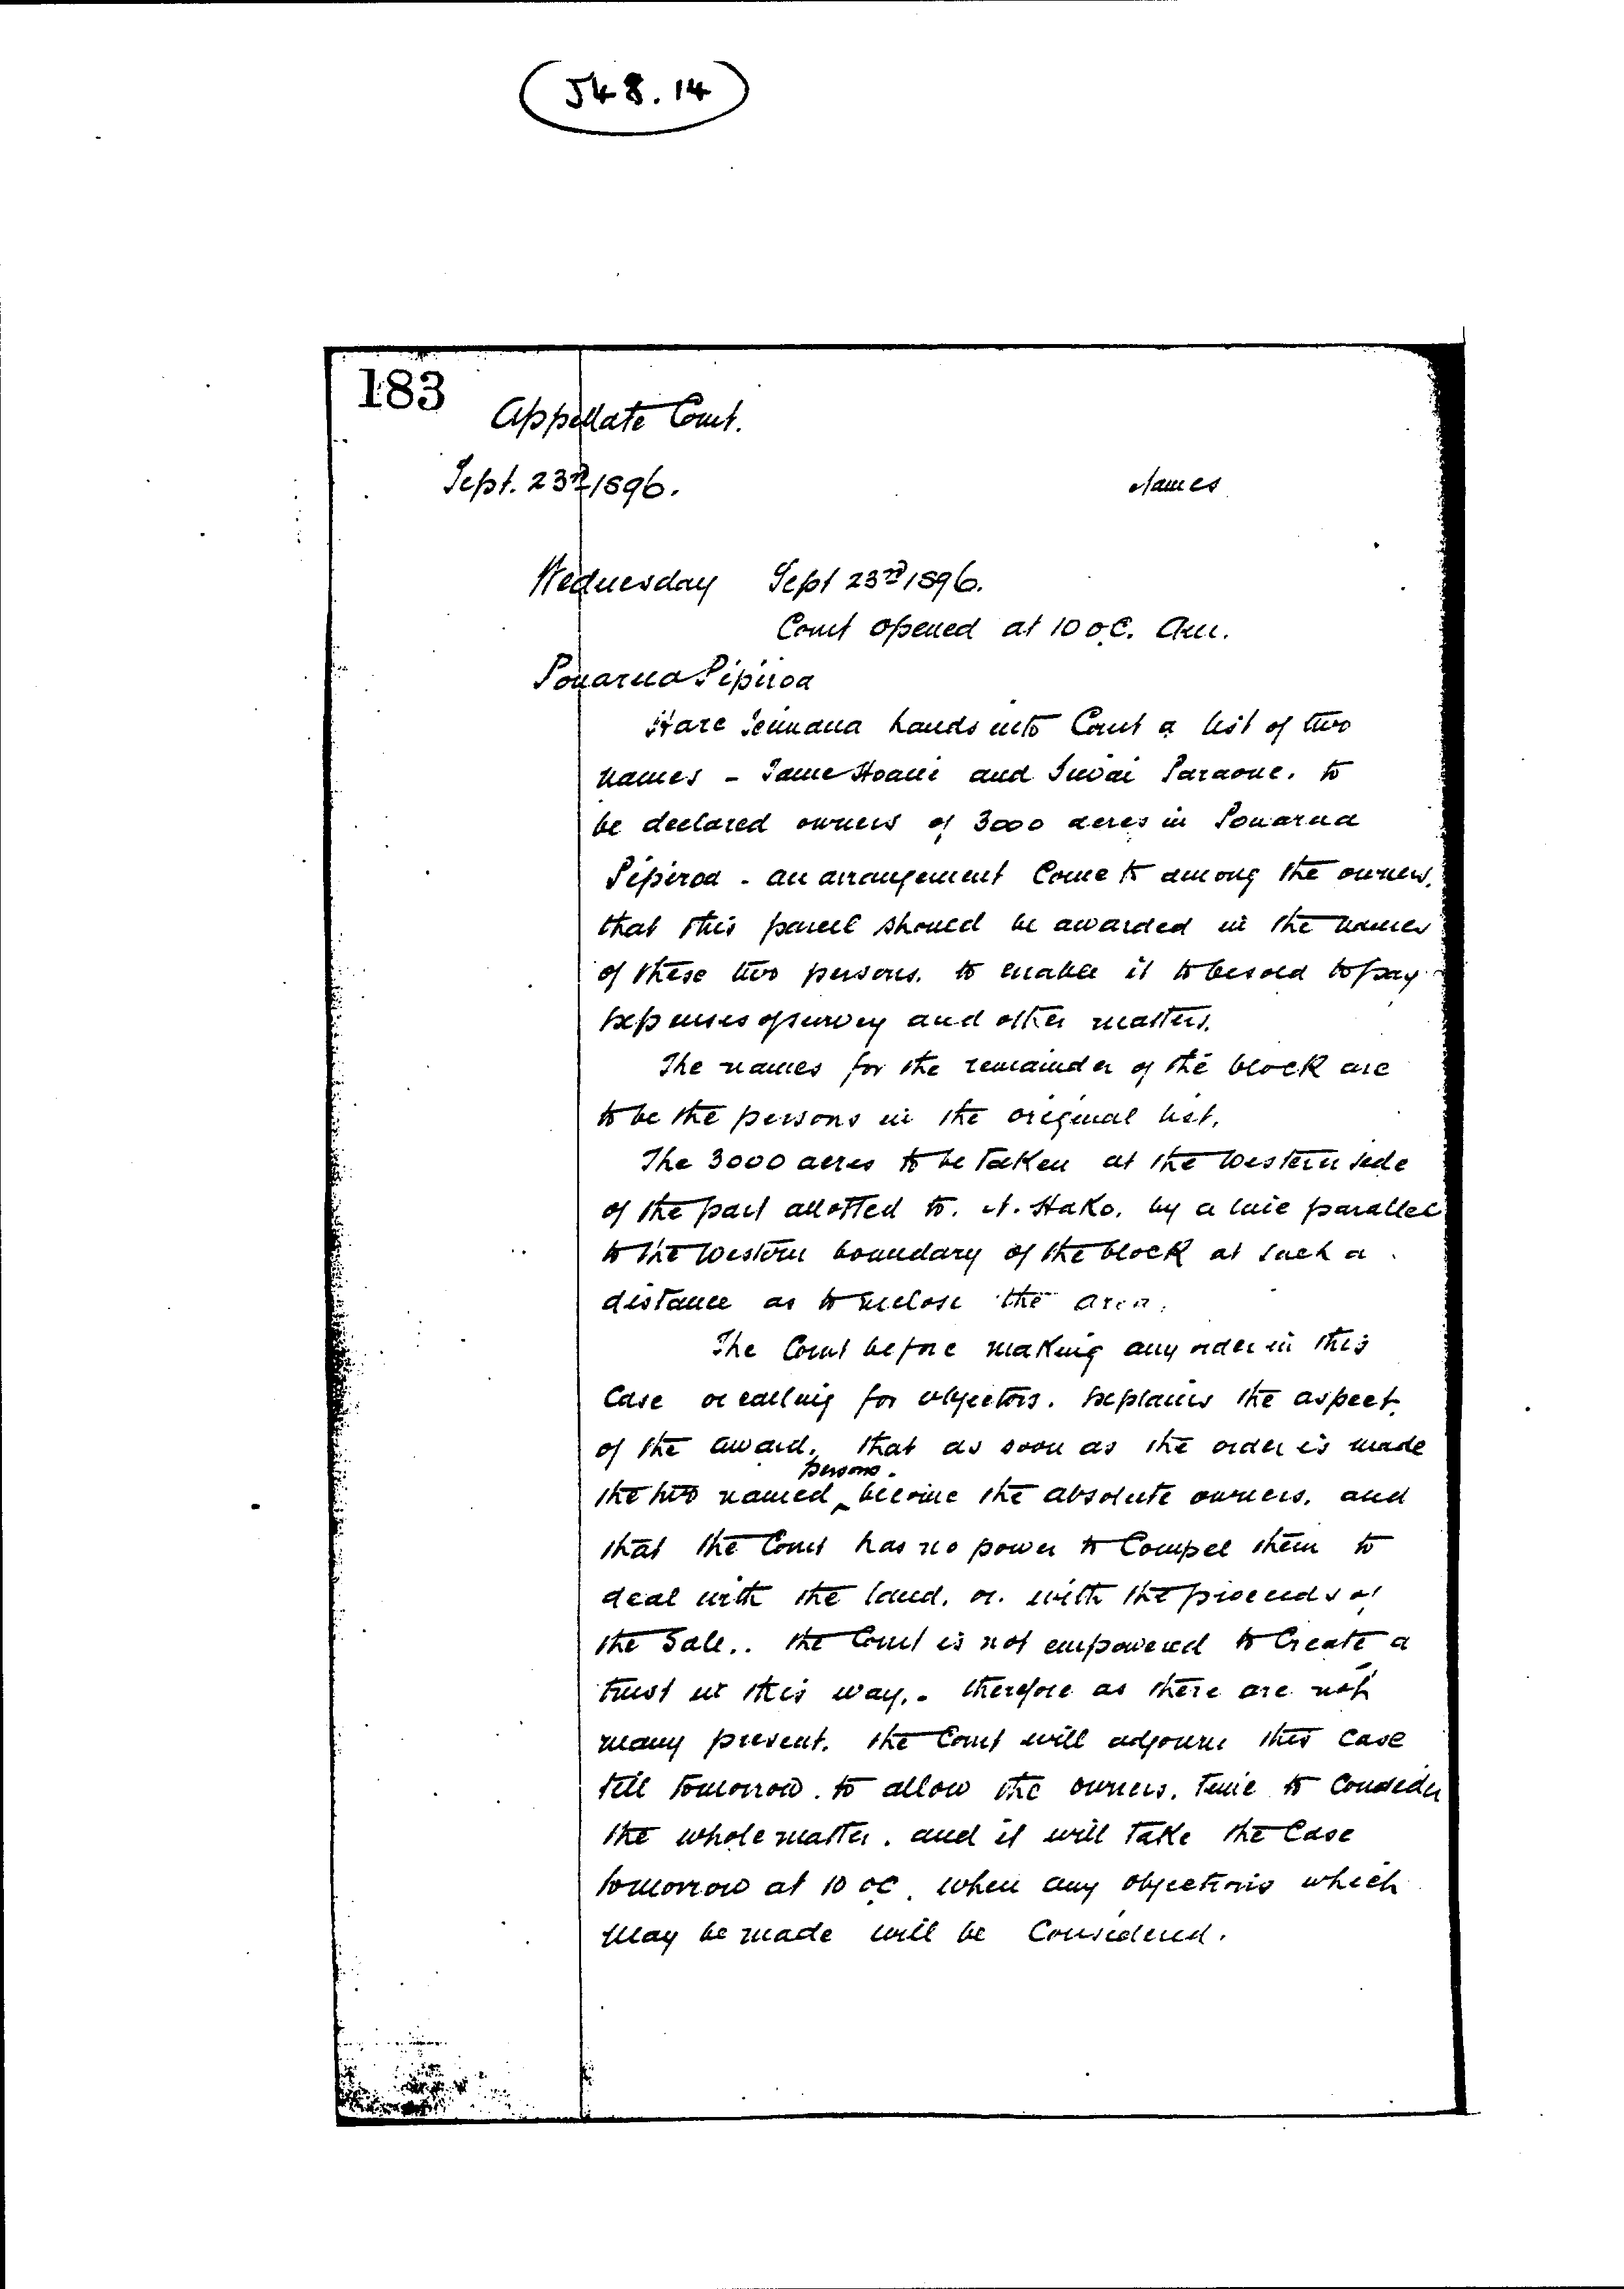 548.14
183
Appellate Court.
Sept. 23rd 1896.
Names
Wednesday Sept 23rd 1896.
Court opened at 10 o.C. am.
Pouarua Pipiroa
Hare Teimana hands into Court a list of two
names - Tame Hoani and Paraone. to
be declared owners of 3000 acres in Pouarua
Pipiroa - an arrangement Come to among the owners.
that this parcel should be awarded in the names
of these two persons. to enable it to be sold to pay
expenses of survey and other matters.
The names for the remainder of the block are
to be the persons in the original list.
The 3000 acres to be taken at the Western side
of the part allotted to. N. Hako. by a line parallel
to the Western boundary of the block at such a
distance as to enclose the area.
The Court before making any order in this
Case or calling for objectors. explains the aspect
of the award. that as soon as the order is made
the two named persons. become the absolute owners. and
that the Court has no power to Compel them to
deal with the land. or. with the proceeds of
the Sale.. the Court is not empowered to Create a
trust in this way.. therefore as there are not
many present. the Court will adjourn this Case
till tomorrow. to allow the owners. time to Consider
the whole matter. and it will take the Case
tomorrow at 10 o.C. when any objections which
may be made will be Considered.